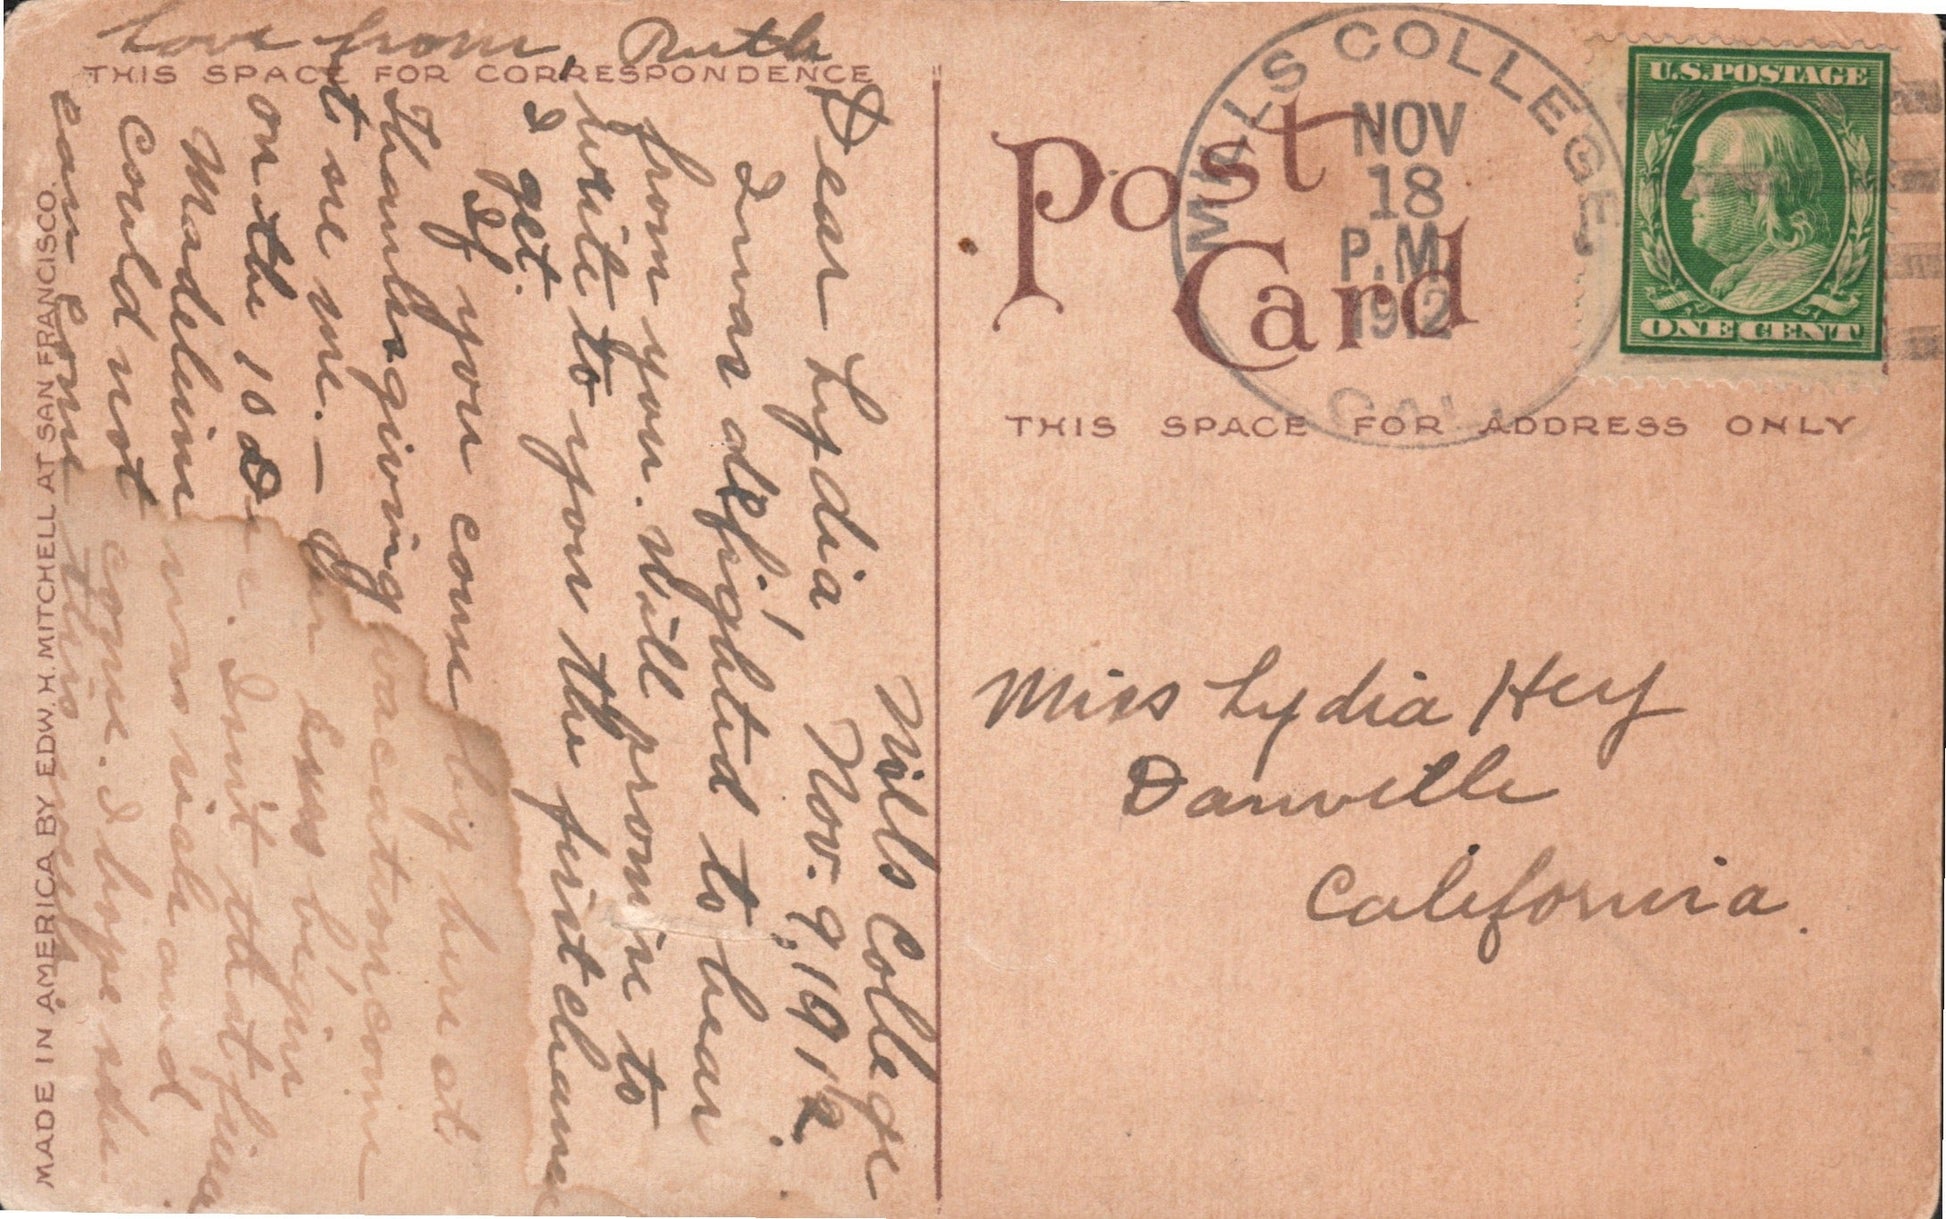 THIS SPACE FOR CORRESPONDENCE
Mills College
Nov. 9, 1912.
Dear Lydia,
I was delighted to hear
from you. Will promise to
write to you the first chance
I get.
If you come by here at
Thanksgiving vacation come
t see me. – begins
on the 10 Isn't that fine
Madeline was sick and
could not come. I hope she
can come this
Love from, Ruth
MADE IN AMERICA BY EDW. H. MITCHELL AT SAN FRANCISCO.
Post Card
MILLS COLLEGE
NOV
18
P.M.
1912
CAL.
U.S. POSTAGE
ONE CENT
THIS SPACE FOR ADDRESS ONLY
Miss Lydia Hey
Danville
California.